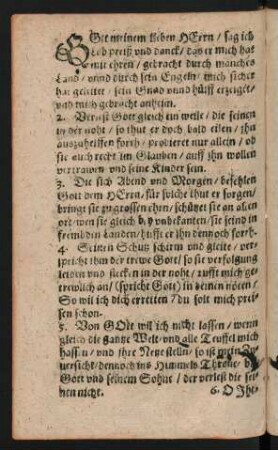 GOtt meinem lieben HErrn / sag ich
Lob preiß vnd danck / das er mich hat
mit ehren / gebracht durch manches
Land / vnnd durch sein Engeln / mich sicher
hat geleitet / sein Gnad vnnd hülff erzeiget /
vnd mich gebracht anheim.
2. Verläst Gott gleich ein weile / die seinen
in der noht / so thut er doch bald eilen / ihn
auszuhelffen forth / probieret nur allein / ob
sie auch recht im Glauben / auff ihn wollen
vertrawen / vnd seine Kinder sein.
3. Die sich Abend vnd Morgen / befehlen
Gott dem HErrn / für solche thut er sorgen /
bringt sie zu grossen ehrn / schützet sie an allen
orten / sie gleich vnbekanten / sie seind in
frembden Landen / hilfft er ihn dennoch forth.
4. Seinen Schutz schirm vnd gleite / ver-
spricht ihm der trewe Gott / so sie verfolgung
leiden vnd stecken in der noht / rufft mich ge-
trewlich an / (spricht Gott) in deinen nöten /
So wil ich dich erretten / du solt mich prei-
sen schon.
5. Von GOtt wil ich nicht lassen / wenn
gleich die gantze Welt / vnd alle Teuffel mich
hassen / vnd ihre Netze stelln / so ist mein Zu-
versicht / dennoch ins Himmels Throne /
Gott vnd seinem Sohne / der verlest die sei-
nen nicht.
6. O Jhe-